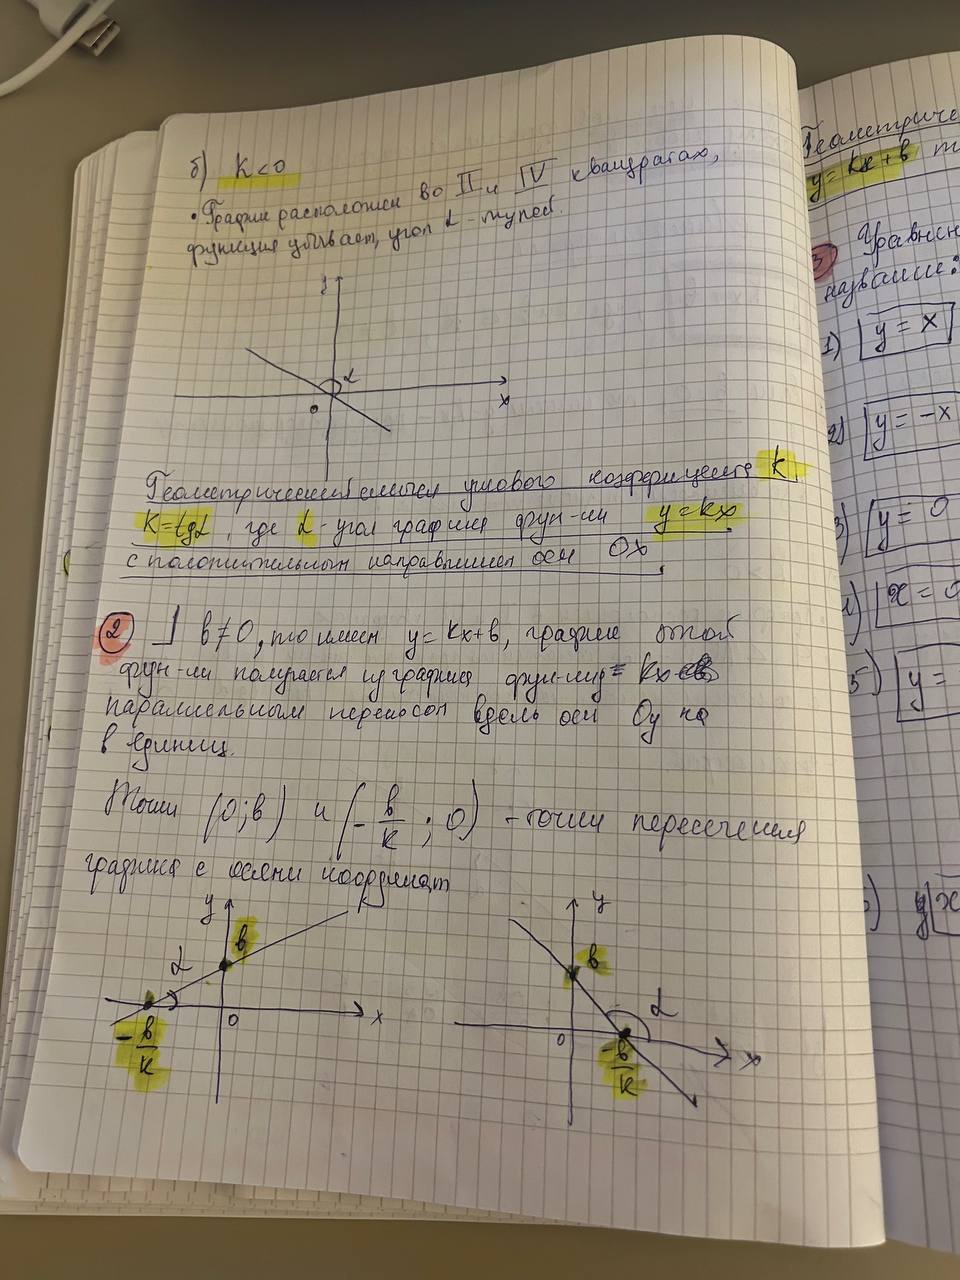 б) K<0
• График расположен во II и IV квадратах,
функция убывает, угол α - тупой.
y
α
0
x
Геометрический смысл углового коэффициента k.
K=tgα, где α - угол графика фун-ии y=kx
с положительным направлением оси Ox.
2 ⅃ b≠0, то имеем y=Kx+b, график этой
фун-ии получается из графика фун-ии y=Kx
параллельным переносом вдоль оси Oy на
b единиц.
Точки (0;b) и (-b/K; 0) - точки пересечения
графика с осями координат
y
b
α
0
x
-b/K
y
b
α
0
x
-b/K
Геометриче
y=Kx+b
3 Уравнен
название:
1) y=x
2) y=-x
3) y=0
x=0
5) y=